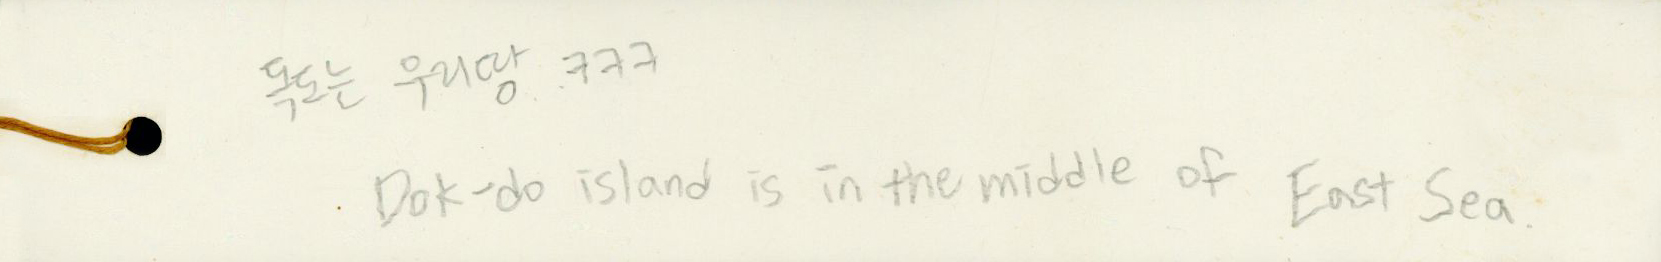 독도는 우리땅 ㅋㅋㅋ
Dok-do island is in the middle of East Sea.